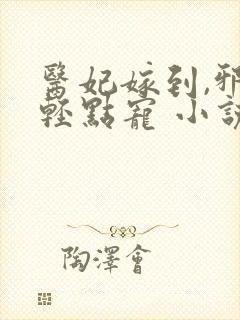 醫妃嫁到,邪
輕點寵 小說
陶澤會